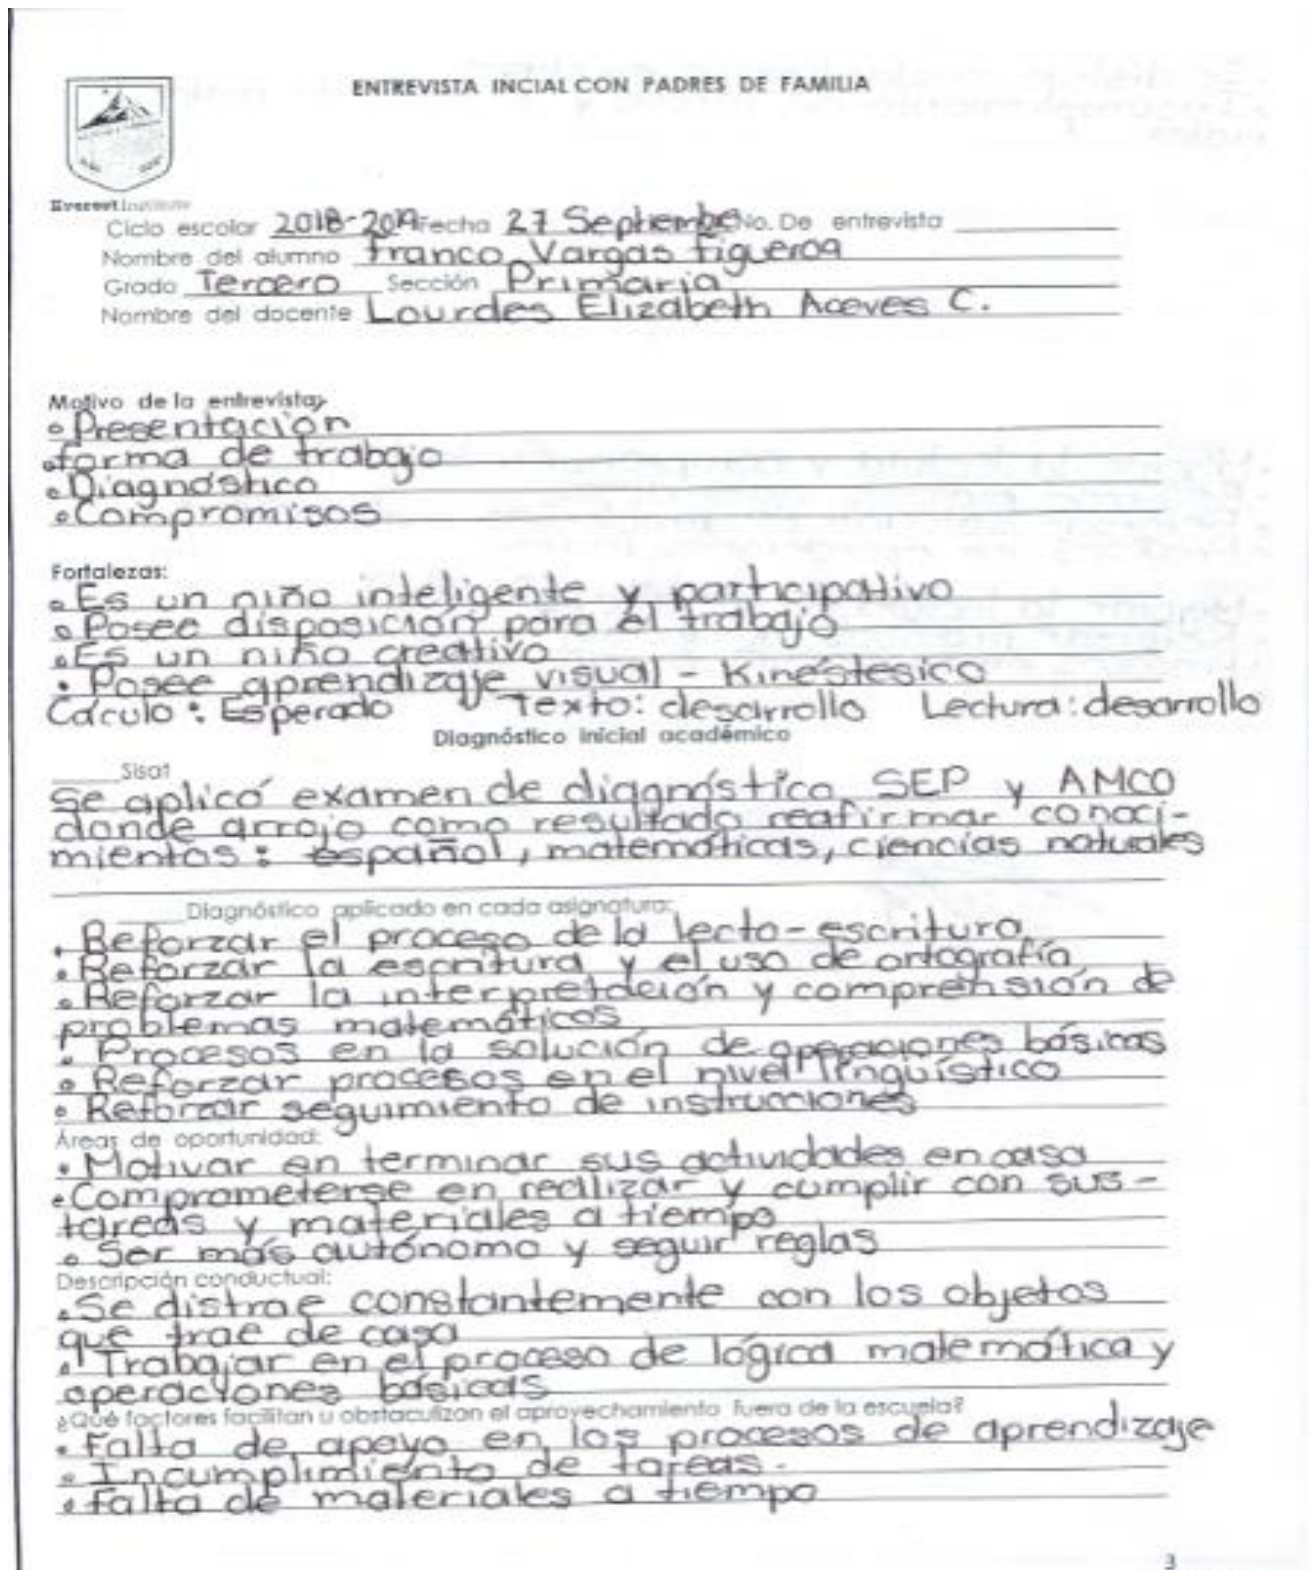 ENTREVISTA INCIAL CON PADRES DE FAMILIA
Everest Institute
Ciclo escolar 2018-2019 Fecha 27 Septiembre No. De entrevista
Nombre del alumno Franco Vargas Figueroa
Grado Tercero Sección Primaria
Nombre del docente Lourdes Elizabeth Aceves C.
Motivo de la entrevista:
• Presentación
• forma de trabajo
• Diagnóstico
• Compromisos
Fortalezas:
• Es un niño inteligente y participativo
• Posee disposición para el trabajo
• Es un niño creativo
• Posee aprendizaje visual - Kinéstesico
Cálculo: Esperado Texto: desarrollo Lectura: desarrollo
Diagnóstico inicial académico
Sisat
Se aplicó examen de diagnóstico SEP y AMCO
donde arrojo como resultado reafirmar conoci-
mientos: español, matemáticas, ciencias naturales
Diagnóstico aplicado en cada asignatura:
• Reforzar el proceso de la lecto-escritura
• Reforzar la escritura y el uso de ortografía
• Reforzar la interpretación y comprensión de
problemas matemáticos
• Procesos en la solución de operaciones básicas
• Reforzar procesos en el nivel lingüístico
• Reforzar seguimiento de instrucciones
Áreas de oportunidad:
• Motivar en terminar sus actividades en casa
• Comprometerse en realizar y cumplir con sus-
tareas y materiales a tiempo
• Ser más autónomo y seguir reglas
Descripción conductual:
• Se distrae constantemente con los objetos
que trae de casa
• Trabajar en el proceso de lógica matemática y
operaciones básicas
¿Qué factores facilitan u obstaculizan el aprovechamiento fuera de la escuela?
• Falta de apoyo en los procesos de aprendizaje
• Incumplimiento de tareas.
• Falta de materiales a tiempo
3